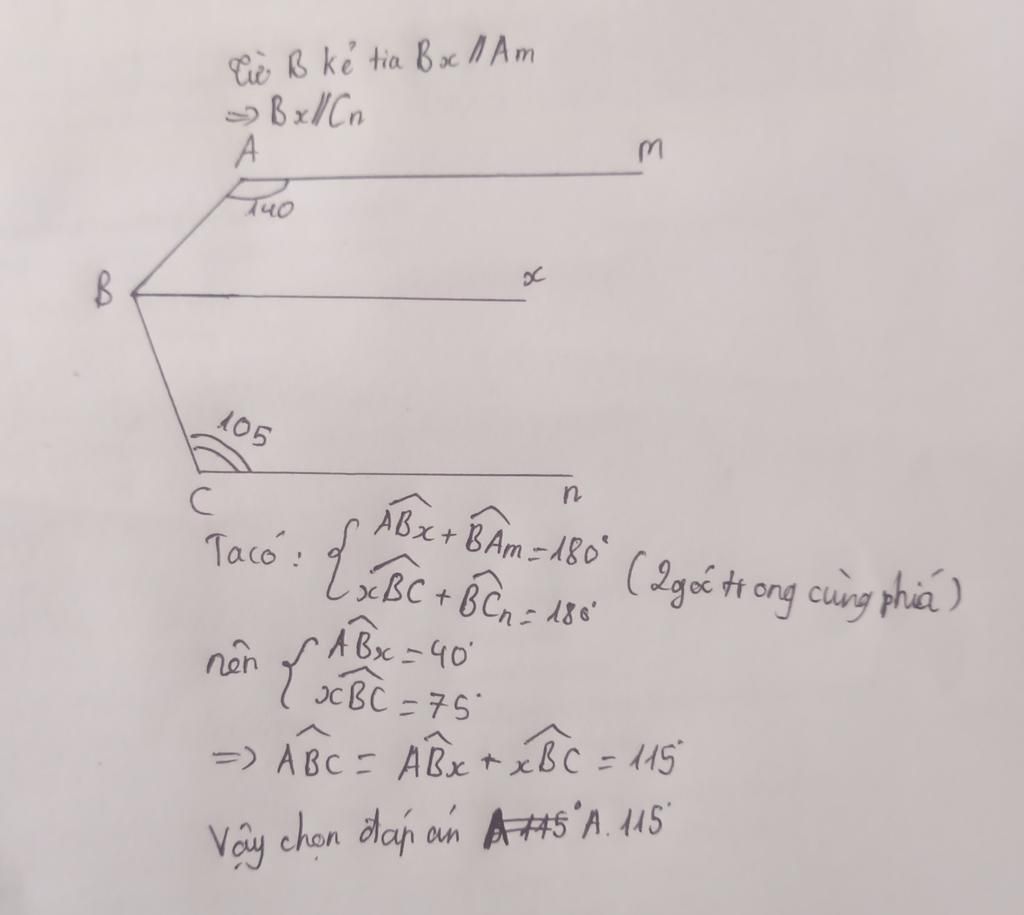 Từ B kẻ tia Bx // Am
=> Bx // Cn
A
m
140
B
x
105
C
n
Ta có: { ABx + BAm = 180° (2 góc trong cùng phiá)
xBC + BCn = 180°
nên { ABx = 40°
xBC = 75°
=> ABC = ABx + xBC = 115°
Vậy chọn đáp án A 115° A. 115°